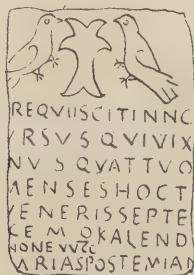 REQVIISCITINNC
VRSVS QVIVIX
NVS QVATTVO
MENSESHOCT
VENERISSEPTE
CEM OKALEND
NONE
ARIASPOSTEMIA